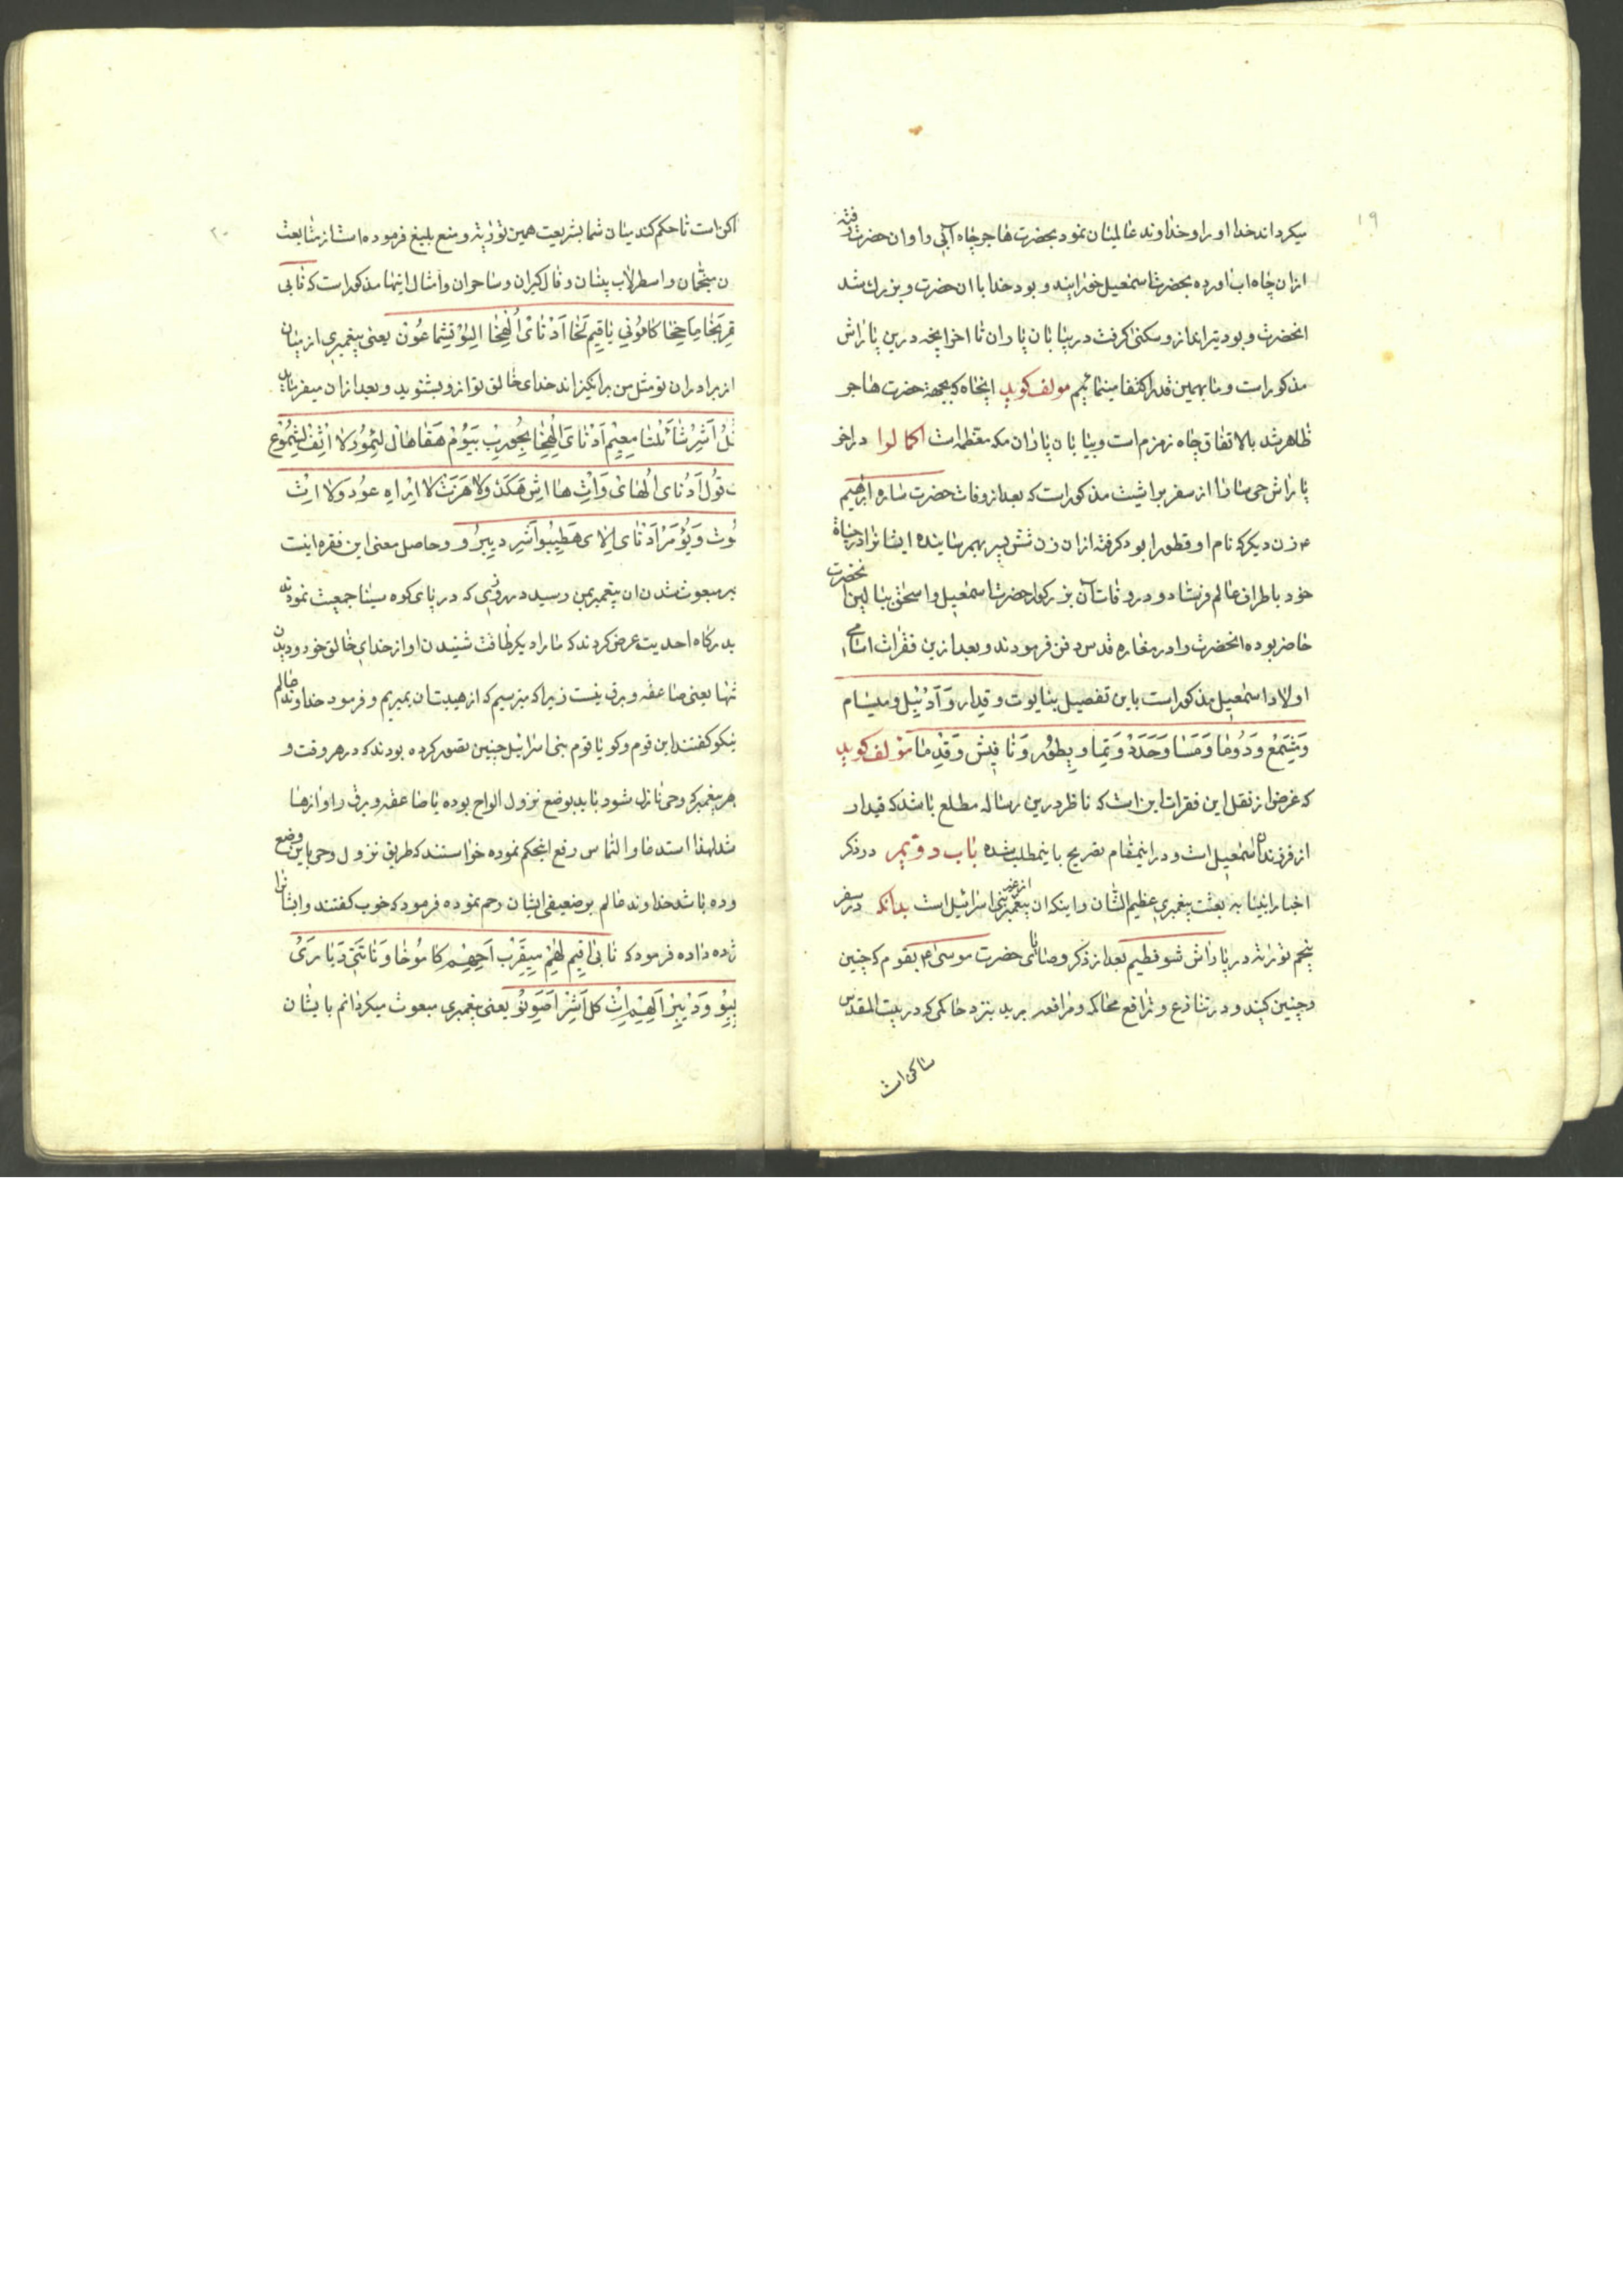 ۱۹
میکرداند خدا او را و خداوند عالمیان نمود بحضرت هاجر چاه آبی را و ان حضرت رفته
ازان چاه اب اورده بحضرت اسمعیل خورانیند و بود خدا با ان حضرت و بزرك شد
انحضرت و بود تیرانداز و سکنی کرفت در بیابان پاران تا اخر ایچه درین پاراش
مذکور است و ما بهمین قدر اکتفا مینمائیم مولف کوید اینچاه که بجهة حضرت هاجر
ظاهر شد بالاتفاق چاه زمزم است و بیابان پاران مکه معظمه است اکمالوا در اخر
پاراش حی سارا از سفر براشیث مذکور است که بعد از وفات حضرت ساره ابرهیم
ع زن دیکر که نام او قطورا بود کرفته ازان زن شش پسر بهم رسانیده ایشانرا در حیاة
خود باطراف عالم فرستاد و در وفات آن بزرکوار حضرت اسمعیل و اسحق ببالین انحضرت
حاضر بوده انحضرت را در مغاره قدس دفن فرمودند و بعد ازین فقرات اسامی
اولاد اسمعیل مذکور است باین تفصیل بنایوت و قیدار و آدنیل و میسام
ومیشمع و دوما و مسا و حدد و تیما و یطور و نافیش و قدما مولف کوید
که غرض از نقل این فقرات این است که ناظر درین رساله مطلع باشد که قیدار
از فرزندان اسمعیل است و در اینمقام تصریح باینمطلب شده باب دویم در ذکر
اخبار انبیا به بعثت پیغمبری عظیم الشان و اینکه ان پیغمبر از غیر بنی اسرائیل است بدانکه در سفر
پنجم توریة در پاراش شوفطیم بعد از ذکر وصایای حضرت موسی ع بقوم که چنین
و چنین کنید و در تنازع و ترافع محاکمه و مرافعه برید بنزد حاکمی که در بیت المقدس
ساکن است
۲۰
اکن است تا حکم کند میان شما بشریعت همین توریة و منع بلیغ فرموده است از متابعت
ن منجمان و اسطرلاب بینان و فال کیران و ساحران و امثال اینها مذکور است که نابی
قربخا ماحیخا کامونی یاقیم لخا ادنای الهخا الیو تیشماعون یعنی پیغمبری از میان
از برادران تو مثل من برانکیزاند خدای خالق تو ازو بشنوید و بعد ازان میفرماید
اشر شائلتا معیم ادنای الهخا بحورب بیوم هقاهال لیمور لا اسف لشموع
قول ادنای الهای و ات ها اش هکدولا هزت لا ایراه عود ولا
وت ویومر ادنای الای هطیبو اشر دیبرو و حاصل معنی این فقره اینست
بر مبعوث شدن ان پیغمبر بمن رسید در روزی که در پای کوه سینا جمعیت نموده
بدرکاه احدیت عرض کردند که مارا دیکر طاقت شنیدن اواز خدای خالق خود و دیدن
تنها یعنی صاعقه و برق نیست زیرا که میترسیم که از هیبت ان بمیریم و فرمود خداوند عالم
نیکو کفتند این قوم و کویا قوم بنی اسرائیل چنین تصور کرده بودند که در هر وقت و
هر پیغمبر که وحی نازل شود باید بوضع نزول الواح بوده با صاعقه و برق و اوازها
شد لهذا استدعا و التماس رفع اینحکم نموده خواستند که طریق نزول وحی باین وضع
وده باشد خداوند عالم بر ضعیفی ایشان رحم نموده فرمود که خوب کفتند و ایشانرا
ژده داده فرمود که نابی اقیم لهیم میقرب احیهیم کاموخا و ناتتی دبارای
بپیو و دیبر الیهیم ات کل اشر اصونو یعنی پیغمبری مبعوث میکردانم بایشان